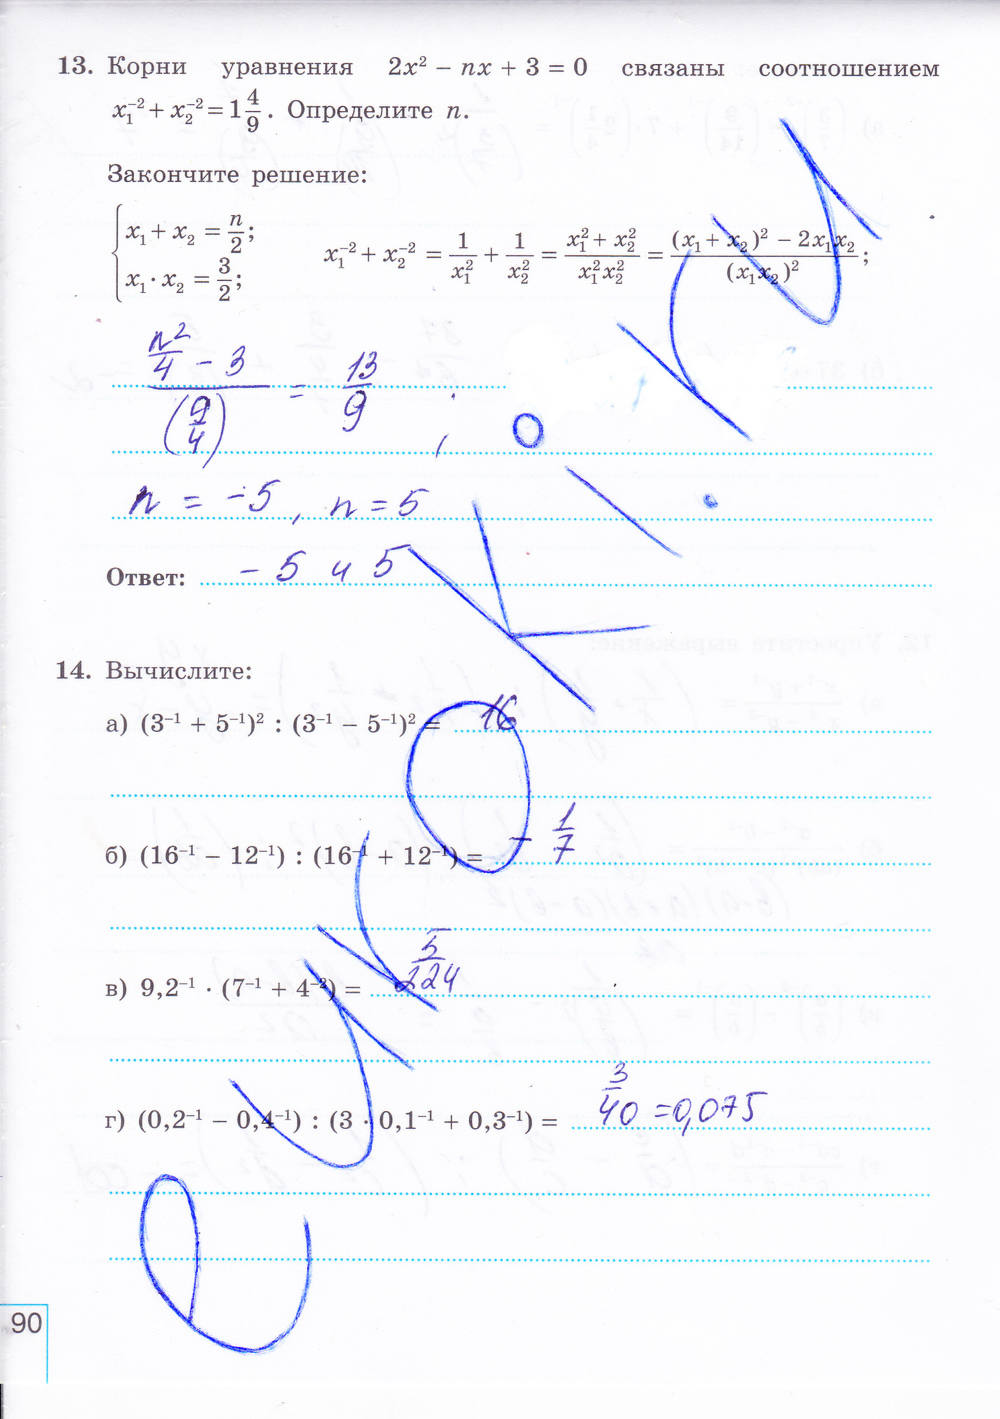 13. Корни уравнения 2x² – nx + 3 = 0 связаны соотношением
x₁⁻² + x₂⁻² = 1 4/9. Определите n.
Закончите решение:
x₁ + x₂ = n/2;
x₁ · x₂ = 3/2;
x₁⁻² + x₂⁻² = 1/x₁² + 1/x₂² = (x₁² + x₂²)/(x₁²x₂²) = ((x₁ + x₂)² – 2x₁x₂)/(x₁x₂)²;
(n²/4 – 3)/(9/4) = 13/9;
n = –5, n = 5
Ответ: –5 и 5
14. Вычислите:
а) (3⁻¹ + 5⁻¹)² : (3⁻¹ – 5⁻¹)² = 16
б) (16⁻¹ – 12⁻¹) : (16⁻¹ + 12⁻¹) = – 1/7
в) 9,2⁻¹ · (7⁻¹ + 4⁻²) = 5/224
г) (0,2⁻¹ – 0,4⁻¹) : (3 · 0,1⁻¹ + 0,3⁻¹) = 3/40 = 0,075
90
еуроки.ру